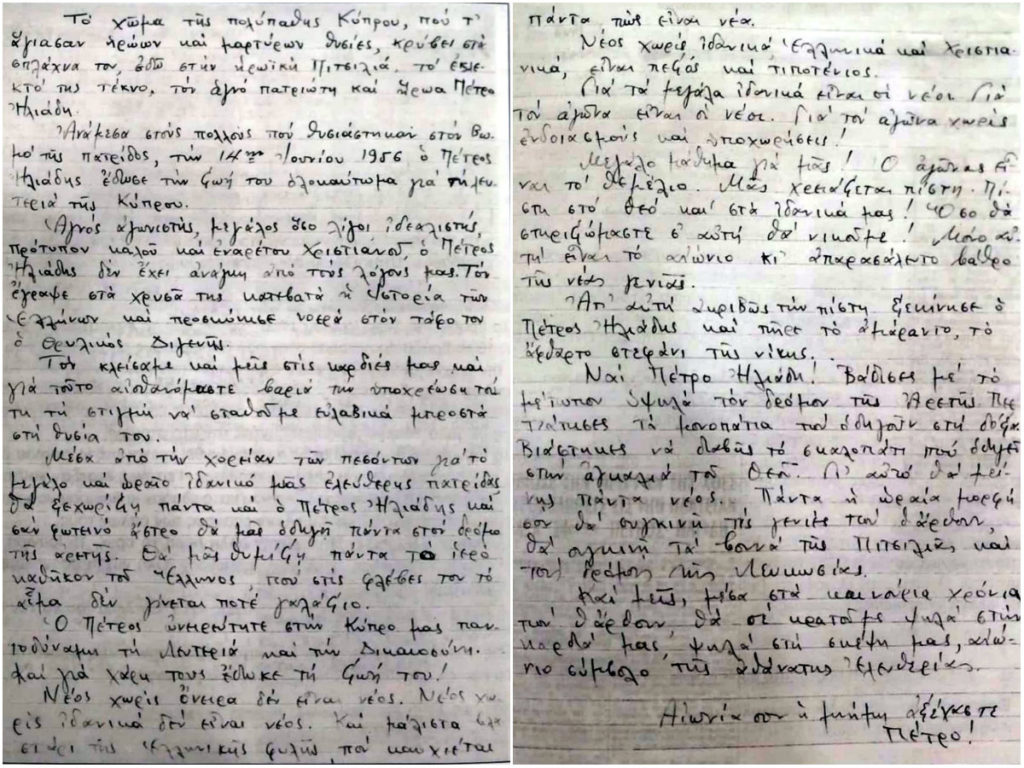 Τό χῶμα τῆς πολύπαθης Κύπρου, πού τ'
ἅγιασαν ἡρώων καί μαρτύρων θυσίες, κρύβει στά
σπλάχνα του, ἐδῶ στήν ἡρωϊκή Πιτσιλιά, τό ἐκλε-
κτό της τέκνο, τόν ἁγνό πατριώτη καί ἥρωα Πέτρο
Ἠλιάδη.
Ἀνάμεσα στούς πολλούς πού θυσιάστηκαν στόν βω-
μό τῆς πατρίδος, τήν 14ην Ἰουνίου 1956 ὁ Πέτρος
Ἠλιάδης ἔδωσε τήν ζωή του ὁλοκαύτωμα γιά τή λευ-
τεριά τῆς Κύπρου.
Ἁγνός ἀγωνιστής, μεγάλος ὅσο λίγοι ἰδεαλιστής,
πρότυπον καλοῦ καί ἐναρέτου Χριστιανοῦ, ὁ Πέτρος
Ἠλιάδης δέν ἔχει ἀνάγκη ἀπό τούς λόγους μας. Τόν
ἔγραψε στά χρυσᾶ της κατεβατά ἡ Ἱστορία τῶν
Ἑλλήνων καί προσκύνησε νοερά στόν τάφο του
ὁ θρυλικός Διγενής.
Τόν κλείσαμε καί μεῖς στίς καρδιές μας καί
γιά τοῦτο αἰσθανόμαστε βαριά τήν ὑποχρέωση τού-
τη τή στιγμή νά σταθοῦμε εὐλαβικά μπροστά
στή θυσία του.
Μέσα ἀπό τήν χορείαν τῶν πεσόντων γιά τό
μεγάλο καί ὡραῖο ἰδανικό μιᾶς ἐλεύθερης πατρίδας
θά ξεχωρίζη πάντα καί ὁ Πέτρος Ἠλιάδης καί
σάν φωτεινό ἄστρο θά μᾶς ὁδηγῆ πάντα στόν δρόμο
τῆς ἀρετῆς. Θά μᾶς θυμίζη πάντα τό ἱερό
καθῆκον τοῦ Ἕλληνος, πού στίς φλέβες του τό
αἷμα δέν γίνεται ποτέ γαλάζιο.
Ὁ Πέτρος ὠνειρεύτητε στήν Κύπρο μας παν-
τοδύναμη τή Λευτεριά καί τήν Δικαιοσύνη.
Καί γιά χάρη τους ἔδωκε τή ζωή του!
Νέος χωρίς ὄνειρα δέν εἶναι νέος. Νέος χω-
ρίς ἰδανικά δέν εἶναι νέος. Καί μάλιστα βλα-
στάρι τῆς Ἑλληνικῆς φυλῆς, πού καυχιέται
πάντα πώς εἶναι νέα.
Νέος χωρίς ἰδανικά Ἑλληνικά καί Χριστια-
νικά, εἶναι πεζός καί τιποτένιος.
Γιά τά μεγάλα ἰδανικά εἶναι οἱ νέοι. Γιά
τόν ἀγῶνα εἶναι οἱ νέοι. Γιά τόν ἀγῶνα χωρίς
ἐνδοιασμούς καί ὑποχωρήσεις!
Μεγάλο μάθημα γιά μᾶς! Ὁ ἀγῶνας εἶ-
ναι τό θεμέλιο. Μᾶς χρειάζεται πίστη. Πί-
στη στό Θεό καί στά ἰδανικά μας! Ὅσο θά
στηριζώμαστε σ' αὐτή θά νικοῦμε! Μόνο αὐ-
τή εἶναι τό αἰώνιο κι' ἀπαρασάλευτο βάθρο
τῆς νέας γενιᾶς.
Ἀπ' αὐτή ἀκριβῶς τήν πίστη ξεκίνησε ὁ
Πέτρος Ἠλιάδης καί πῆρε τό ἀμάραντο, τό
ἄφθαρτο στεφάνι τῆς νίκης.
Ναί Πέτρο Ἠλιάδη! Βάδισες μέ τό
μέτωπον ὑψηλά τόν δρόμον τῆς Ἀρετῆς. Περ-
πάτησες τά μονοπάτια πού ὁδηγοῦν στή δόξα.
Βιάστηκες νά διαβῆς τό σκαλοπάτι πού ὁδηγεῖ
στήν ἀγκαλιά τοῦ Θεοῦ. Γι' αὐτό θά μεί-
νης πάντα νέος. Πάντα ἡ ὡραία μορφή
σου θά συγκινῆ τίς γενιές πού θἄρθουν,
θά συγκινῆ τά βουνά τῆς Πιτσιλιᾶς καί
τούς δρόμους τῆς Λευκωσίας.
Καί μεῖς, μέσα στά καινούρια χρόνια
πού θἄρθουν θά σέ κρατοῦμε ψηλά στήν
καρδιά μας, ψηλά στή σκέψη μας, αἰώ-
νιο σύμβολο τῆς ἀθάνατης Ἐλευθερίας.
Αἰωνία σου ἡ μνήμη ἀξέχαστε
Πέτρο!